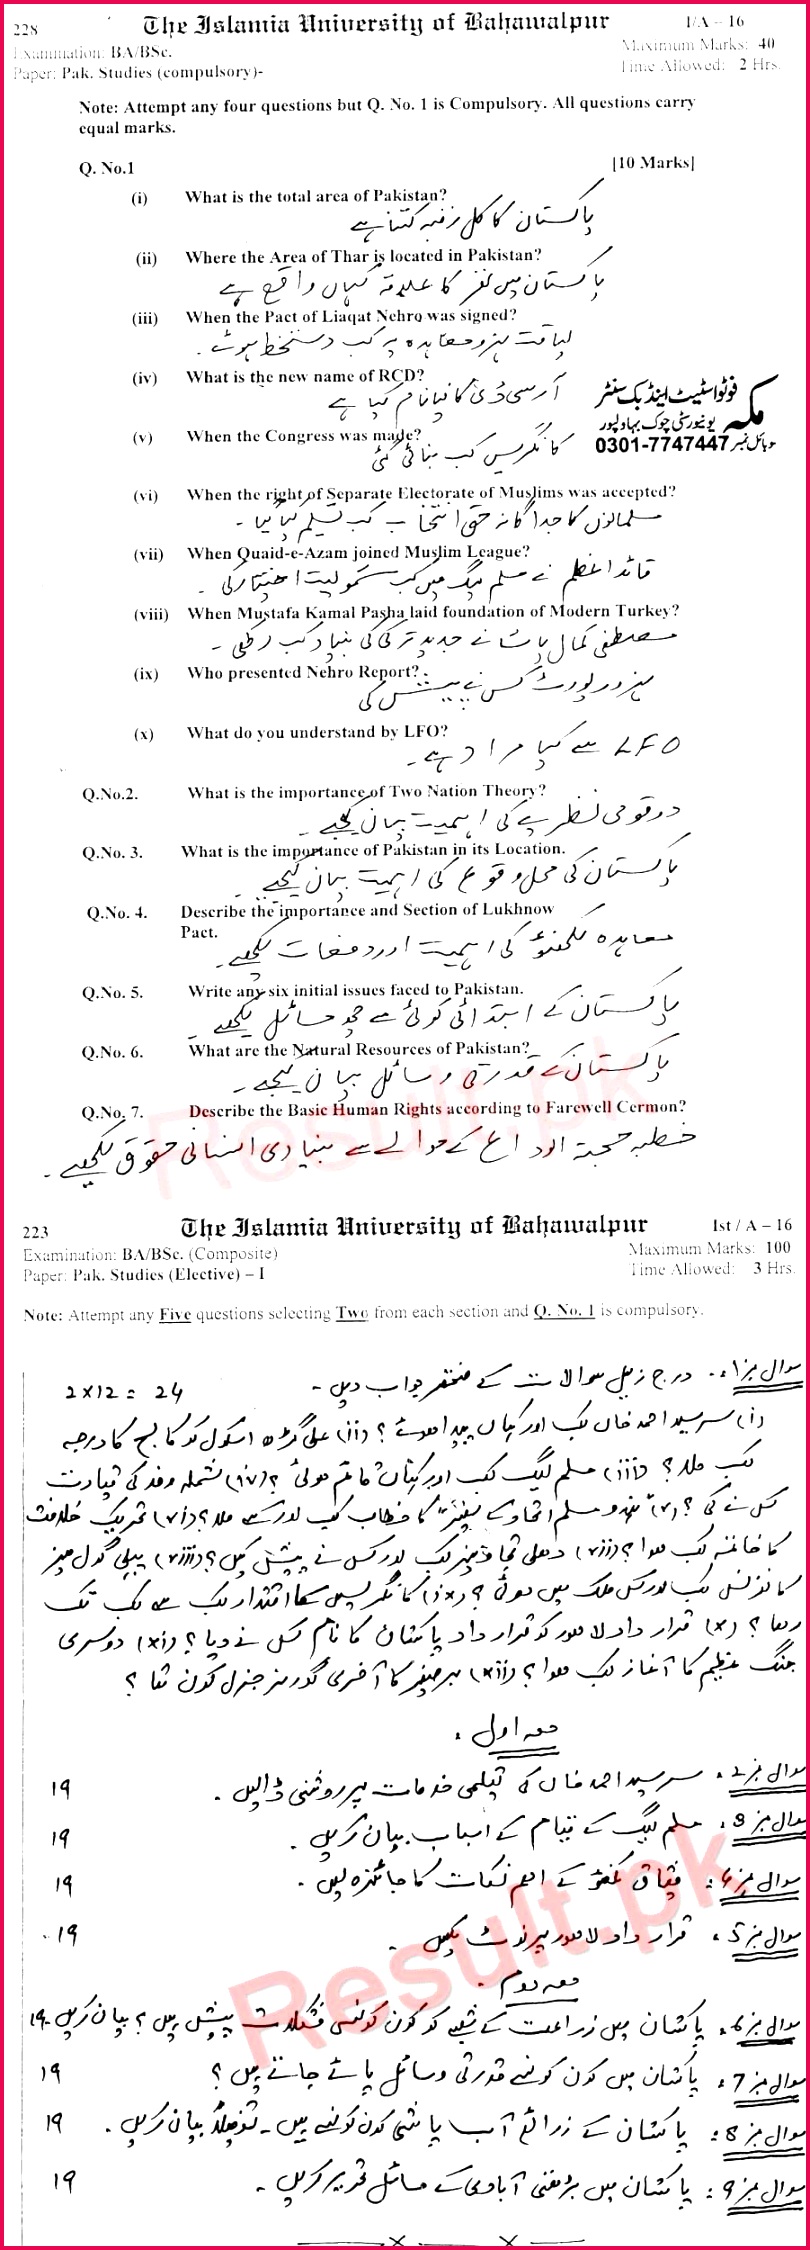 228
The Islamia University of Bahawalpur
I/A – 16
Examination: BA/BSc.
Maximum Marks: 40
Paper: Pak. Studies (compulsory)-
Time Allowed: 2 Hrs.
Note: Attempt any four questions but Q. No. 1 is Compulsory. All questions carry
equal marks.
Q. No.1 [10 Marks]
(i) What is the total area of Pakistan?
پاکستان کا کل رقبہ کتنا ہے
(ii) Where the Area of Thar is located in Pakistan?
پاکستان میں تھر کا علاقہ کہاں واقع ہے
(iii) When the Pact of Liaqat Nehro was signed?
لیاقت نہرو معاہدہ پہ کب دستخط ہوئے۔
(iv) What is the new name of RCD?
آر سی ڈی کا نیا نام کیا ہے
مکہ فوٹو اسٹیٹ اینڈ بک سنٹر
یونیورسٹی چوک بہاولپور
موبائل نمبر 0301-7747447
(v) When the Congress was made?
کانگریس کب بنائی گئی
(vi) When the right of Separate Electorate of Muslims was accepted?
مسلمانوں کا جداگانہ حق انتخاب کب تسلیم کیا گیا۔
(vii) When Quaid-e-Azam joined Muslim League?
قائداعظم نے مسلم لیگ میں کب شمولیت اختیار کی۔
(viii) When Mustafa Kamal Pasha laid foundation of Modern Turkey?
مصطفی کمال پاشا نے جدید ترکی کی بنیاد کب رکھی۔
(ix) Who presented Nehro Report?
نہرو رپورٹ کس نے پیش کی
(x) What do you understand by LFO?
LFO سے کیا مراد ہے۔
Q.No.2. What is the importance of Two Nation Theory?
دو قومی نظریے کی اہمیت بیان کیجیے۔
Q.No. 3. What is the importance of Pakistan in its Location.
پاکستان کی محل وقوع کی اہمیت بیان کیجیے۔
Q.No. 4. Describe the importance and Section of Lukhnow
Pact.
معاہدہ لکھنؤ کی اہمیت اور دفعات لکھیے۔
Q.No. 5. Write any six initial issues faced to Pakistan.
پاکستان کے ابتدائی کوئی سے چھ مسائل لکھیے۔
Q.No. 6. What are the Natural Resources of Pakistan?
پاکستان کے قدرتی وسائل بیان کیجیے۔
Q.No. 7. Describe the Basic Human Rights according to Farewell Cermon?
خطبہ حجۃ الوداع کے حوالے سے بنیادی انسانی حقوق لکھیے۔
Result.pk
223
The Islamia University of Bahawalpur
Ist / A – 16
Examination: BA/BSc. (Composite)
Maximum Marks: 100
Paper: Pak. Studies (Elective) – I
Time Allowed: 3 Hrs.
Note: Attempt any Five questions selecting Two from each section and Q. No. 1 is compulsory.
سوال نمبر 1:۔ درج ذیل سوالات کے مختصر جواب دیں۔ 2×12 = 24
(i) سر سید احمد خاں کب اور کہاں پیدا ہوئے؟ (ii) علی گڑھ اسکول کو کالج کا درجہ
کب ملا؟ (iii) مسلم لیگ کب اور کہاں قائم ہوئی؟ (iv) شملہ وفد کی قیادت
کس نے کی؟ (v) "ہندو مسلم اتحاد کے سفیر" کا خطاب کب اور کسے ملا؟ (vi) تحریک خلافت
کا خاتمہ کب ہوا؟ (vii) دہلی تجاویز کب اور کس نے پیش کیں؟ (viii) پہلی گول میز
کانفرنس کب اور کس ملک میں ہوئی؟ (ix) کانگریس کا اقتدار کب سے کب تک
رہا؟ (x) قرار داد لاہور کو قرار داد پاکستان کا نام کس نے دیا؟ (xi) دوسری
جنگ عظیم کا آغاز کب ہوا؟ (xii) برصغیر کا آخری گورنر جنرل کون تھا؟
حصہ اول۔
سوال نمبر 2: سر سید احمد خاں کی تعلیمی خدمات پر روشنی ڈالیں۔ 19
سوال نمبر 3: مسلم لیگ کے قیام کے اسباب بیان کریں۔ 19
سوال نمبر 4: میثاق لکھنؤ کے اہم نکات کا جائزہ لیں۔ 19
سوال نمبر 5: قرار داد لاہور پر نوٹ لکھیں۔ 19
حصہ دوم۔
سوال نمبر 6: پاکستان میں زراعت کے شعبے کو کون کونسی مشکلات پیش ہیں؟ بیان کریں۔ 19
سوال نمبر 7: پاکستان میں کون کونسے قدرتی وسائل پائے جاتے ہیں؟ 19
سوال نمبر 8: پاکستان کے ذرائع آب پاشی کون کونسے ہیں۔ تفصیلاً بیان کریں۔ 19
سوال نمبر 9: پاکستان میں بڑھتی آبادی کے مسائل تحریر کریں۔ 19
Result.pk